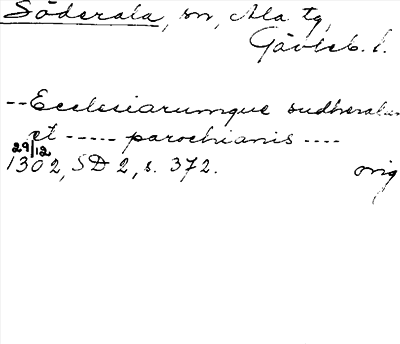 Söderala, sn, Ala tg,
Gävleb. l.
-- Ecclesiarumque sudheralum
et ----- parochianis ----
29/12
1302, SD 2, s. 372. orig